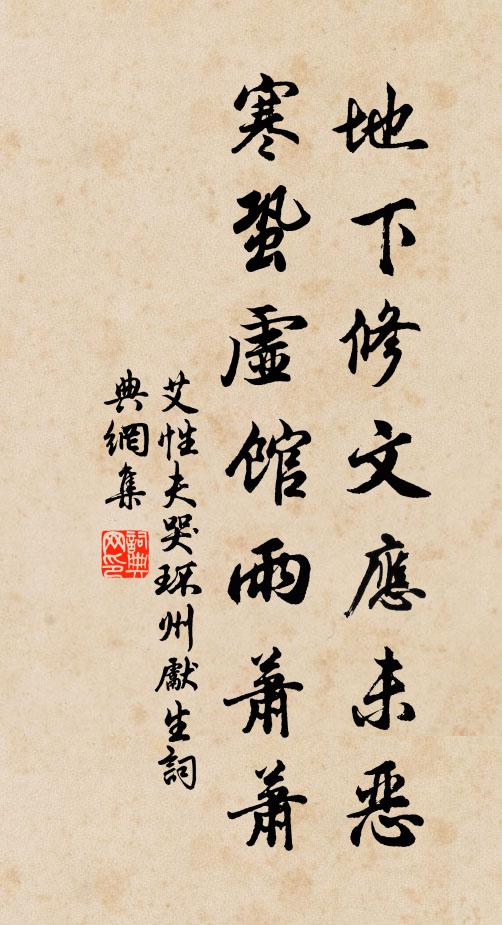 地下修文應未惡
寒蛩虛館雨蕭蕭
艾性夫哭琛州獻生詞
典網集
詞典網印